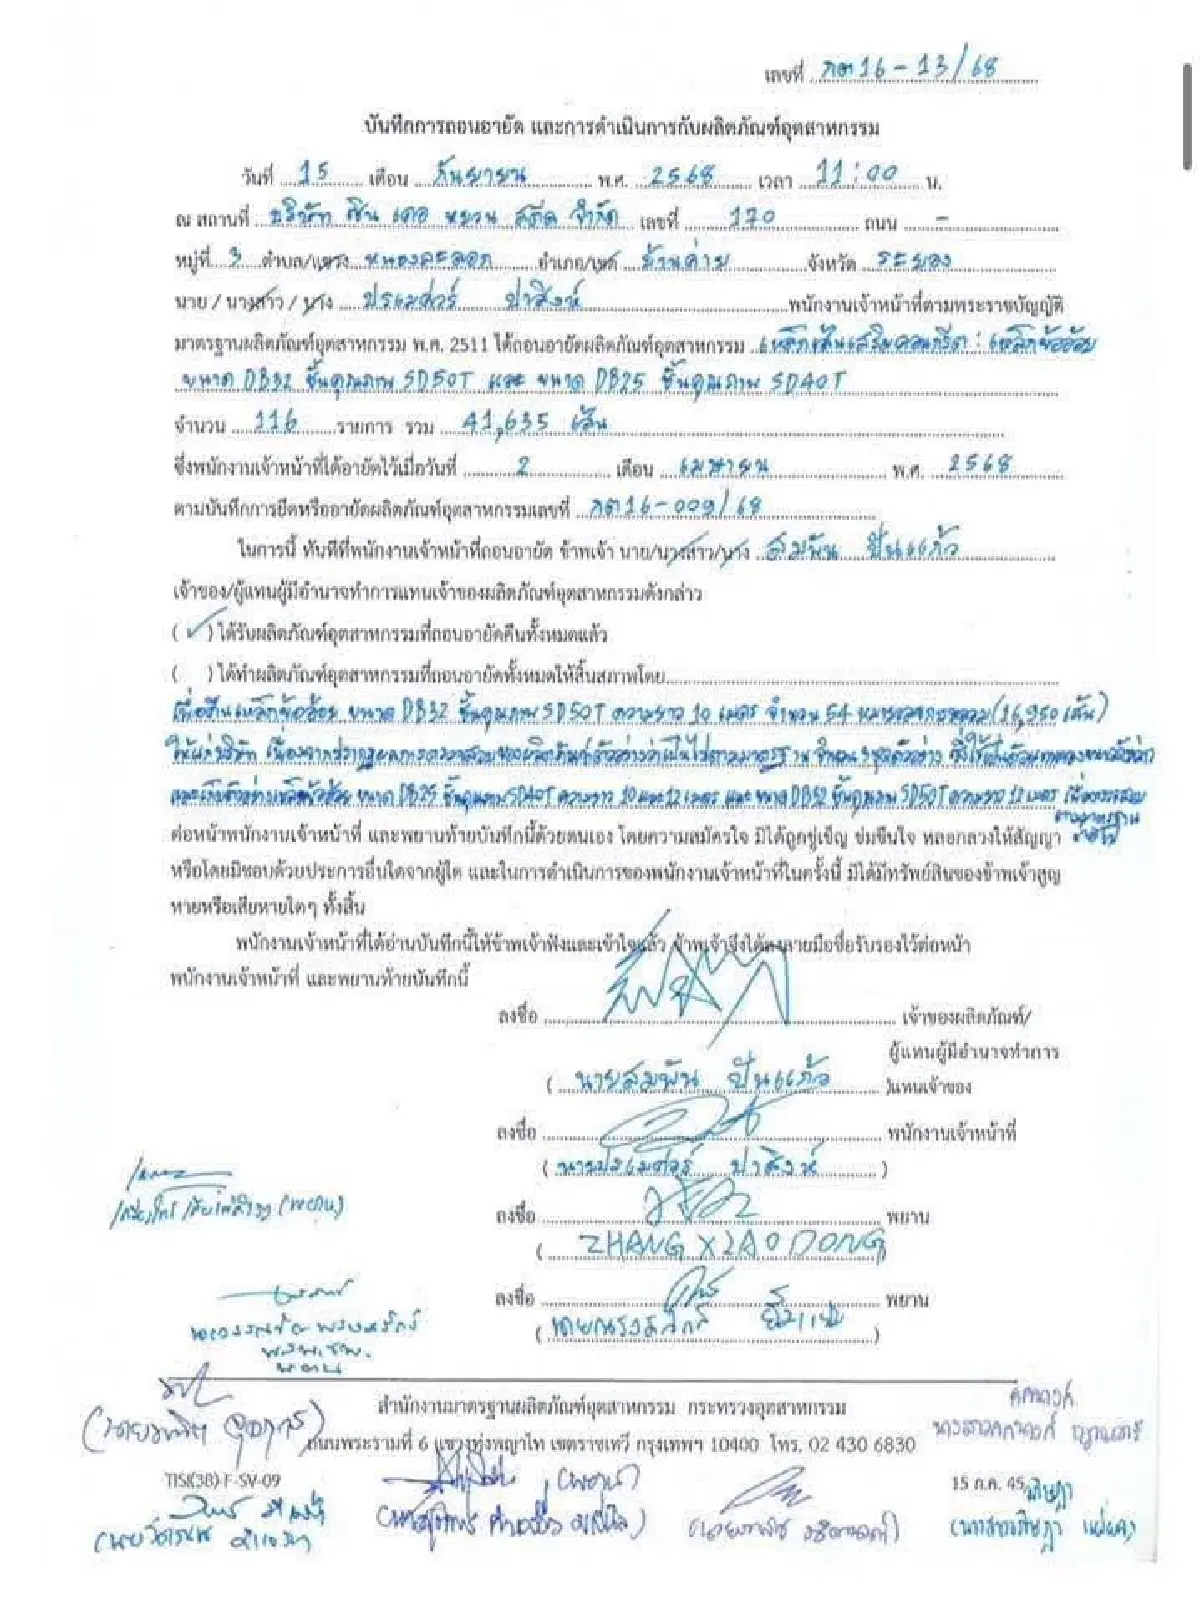 เลขที่ กต16-13/68
บันทึกการถอนอายัด และการดำเนินการกับผลิตภัณฑ์อุตสาหกรรม
วันที่ 15 เดือน กันยายน พ.ศ. 2568 เวลา 11:00 น.
ณ สถานที่ บริษัท ซิน เคอ หยวน สตีล จำกัด เลขที่ 170 ถนน -
หมู่ที่ 3 ตำบล/แขวง หนองละลอก อำเภอ/เขต บ้านค่าย จังหวัด ระยอง
นาย / นางสาว / นาง ปรเมศวร์ ปาสิงห์ พนักงานเจ้าหน้าที่ตามพระราชบัญญัติ
มาตรฐานผลิตภัณฑ์อุตสาหกรรม พ.ศ. 2511 ได้ถอนอายัดผลิตภัณฑ์อุตสาหกรรม เหล็กเส้นเสริมคอนกรีต : เหล็กข้ออ้อย
ขนาด DB32 ชั้นคุณภาพ SD50T และ ขนาด DB25 ชั้นคุณภาพ SD40T
จำนวน 116 รายการ รวม 41,635 เส้น
ซึ่งพนักงานเจ้าหน้าที่ได้อายัดไว้เมื่อวันที่ 2 เดือน เมษายน พ.ศ. 2568
ตามบันทึกการยึดหรืออายัดผลิตภัณฑ์อุตสาหกรรมเลขที่ กต16-009/68
ในการนี้ ทันทีที่พนักงานเจ้าหน้าที่ถอนอายัด ข้าพเจ้า นาย/นางสาว/นาง สมพัน ปันแก้ว
เจ้าของ/ผู้แทนผู้มีอำนาจทำการแทนเจ้าของผลิตภัณฑ์อุตสาหกรรมดังกล่าว
(✓) ได้รับผลิตภัณฑ์อุตสาหกรรมที่ถอนอายัดคืนทั้งหมดแล้ว
( ) ได้ทำผลิตภัณฑ์อุตสาหกรรมที่ถอนอายัดทั้งหมดให้สิ้นสภาพโดย
เพื่อคืนเหล็กข้ออ้อย ขนาด DB32 ชั้นคุณภาพ SD50T ความยาว 10 เมตร จำนวน 54 (16,950 เส้น)
ให้แก่บริษัท เนื่องจากปรากฏผลการตรวจสอบของผลิตภัณฑ์ตัวอย่างว่าเป็นไปตามมาตรฐาน
และเก็บตัวอย่างเหล็กข้ออ้อย ขนาด DB25 ชั้นคุณภาพ SD40T ความยาว 10 และ 12 เมตร และ ขนาด DB32 ชั้นคุณภาพ SD50T ความยาว 12 เมตร
ต่อหน้าพนักงานเจ้าหน้าที่ และพยานท้ายบันทึกนี้ด้วยตนเอง โดยความสมัครใจ มิได้ถูกขู่เข็ญ ข่มขืนใจ หลอกลวงให้สัญญา
หรือโดยมิชอบด้วยประการอื่นใดจากผู้ใด และในการดำเนินการของพนักงานเจ้าหน้าที่ในครั้งนี้ มิได้มีทรัพย์สินของข้าพเจ้าสูญ
หายหรือเสียหายใดๆ ทั้งสิ้น
พนักงานเจ้าหน้าที่ได้อ่านบันทึกนี้ให้ข้าพเจ้าฟังและเข้าใจแล้ว ข้าพเจ้าจึงได้ลงลายมือชื่อรับรองไว้ต่อหน้า
พนักงานเจ้าหน้าที่ และพยานท้ายบันทึกนี้
ลงชื่อ เจ้าของผลิตภัณฑ์/
ผู้แทนผู้มีอำนาจทำการ
( นายสมพัน ปันแก้ว )แทนเจ้าของ
ลงชื่อ พนักงานเจ้าหน้าที่
( นายปรเมศวร์ ปาสิงห์ )
ลงชื่อ พยาน
( ZHANG XIAO DONG )
ลงชื่อ พยาน
(พยาน)
พยาน
สำนักงานมาตรฐานผลิตภัณฑ์อุตสาหกรรม กระทรวงอุตสาหกรรม
ถนนพระรามที่ 6 แขวงทุ่งพญาไท เขตราชเทวี กรุงเทพฯ 10400 โทร. 02 430 6830
TISI(3B) F-SV-09
(พยาน)
15 ก.ค. 45